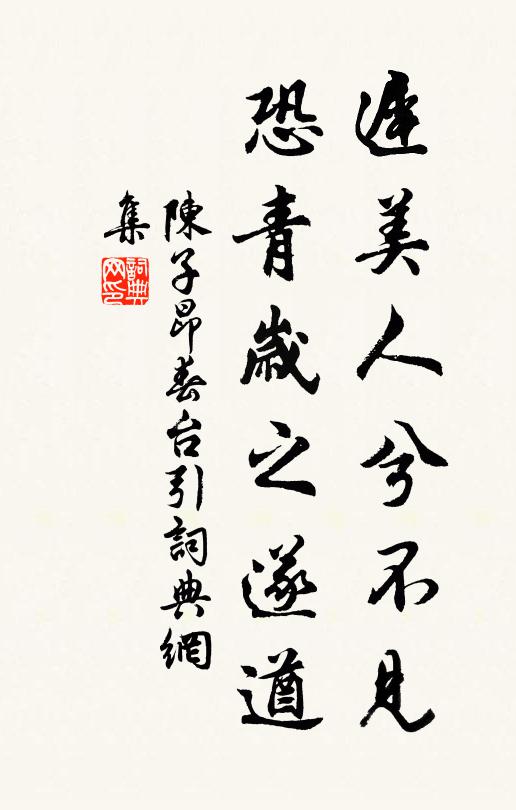 遲美人兮不見
恐青歲之遂遒
陳子昂春台引詞典網
集
詞典
网印